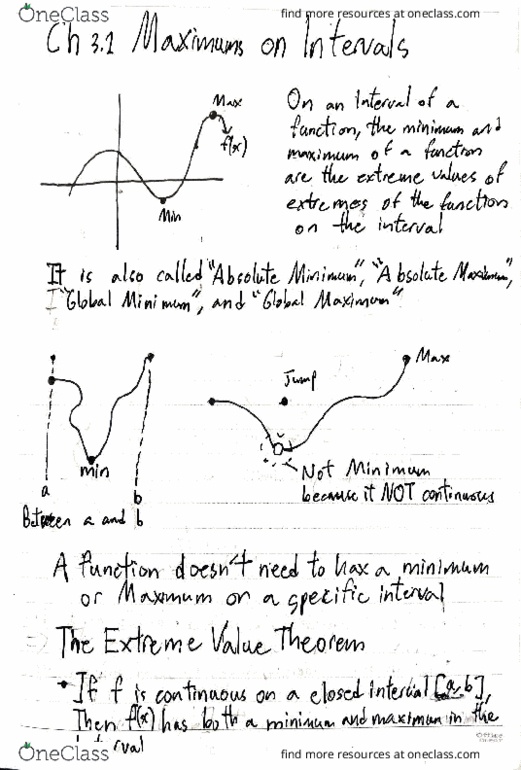 OneClass
find more resources at oneclass.com
Ch 3.1 Maximums on Intervals
Max
f(x)
Min
On an Interval of a
function, the minimum and
maximum of a function
are the extreme values of
extremes of the function
on the interval
It is also called "Absolute Minimum", "Absolute Maximum",
"Global Minimum", and "Global Maximum"
Max
Jump
min
Not Minimum
because it NOT continuous
a
b
Between a and b
A function doesn't need to hax a minimum
or Maximum on a specific interval
The Extreme Value Theorem
• If f is continuous on a closed interval [a,b],
Then f(x) has both a minimum and maximum in the
OneClass
find more resources at oneclass.com